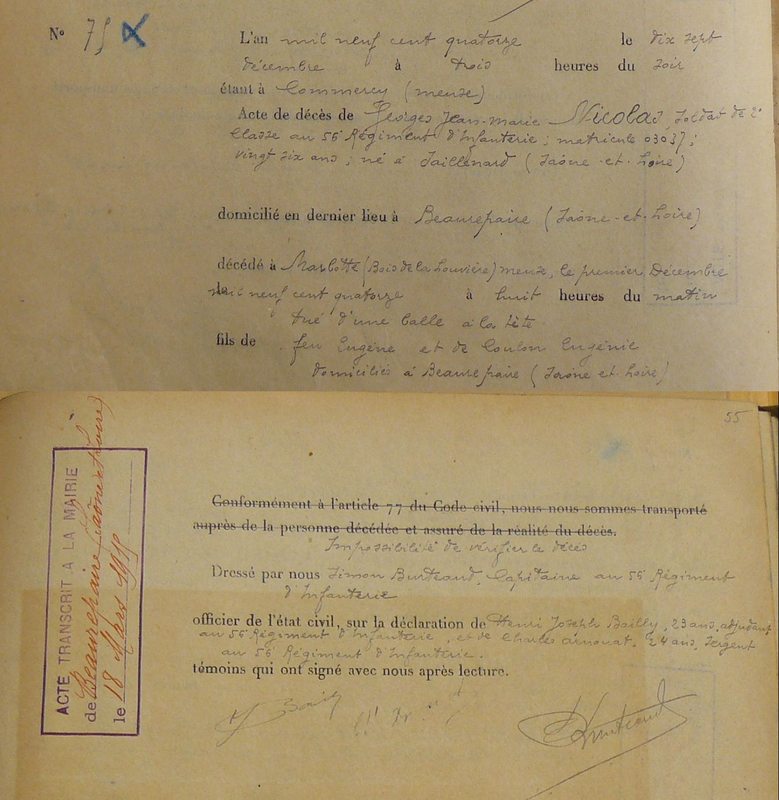 N° 75
L'an mil neuf cent quatorze le dix sept
décembre à trois heures du soir
étant à Commercy (meuse)
Acte de décès de Georges Jean-Marie Nicolas, Soldat de 2e
Classe au 56 Régiment d'Infanterie; matricule 03037;
vingt six ans; né à Saillenard (Saône-et-Loire)
domicilié en dernier lieu à Beaurepaire (Saône-et-Loire)
décédé à Marbotte (Bois de la Louvière) meuse, le premier Décembre
le mil neuf cent quatorze à huit heures du matin
tué d'une balle à la tête
fils de feu Eugène et de Coulon Eugénie
domiciliés à Beaurepaire (Saône et-Loire)
55
Conformément à l'article 77 du Code civil, nous nous sommes transporté
auprès de la personne décédée et assuré de la réalité du décès.
Impossibilité de vérifier le décès
Dressé par nous Simon Burteaud, Capitaine au 56 Régiment
d'Infanterie
officier de l'état civil, sur la déclaration de Henri Joseph Bailly, 23 ans, adjudant
au 56 Régiment d'Infanterie, et de Charles Arnouat, 24 ans, Sergent
au 56 Régiment d'Infanterie.
témoins qui ont signé avec nous après lecture.
ACTE TRANSCRIT A LA MAIRIE
de Beaurepaire (Saône et Loire)
le 18 Mars 1915